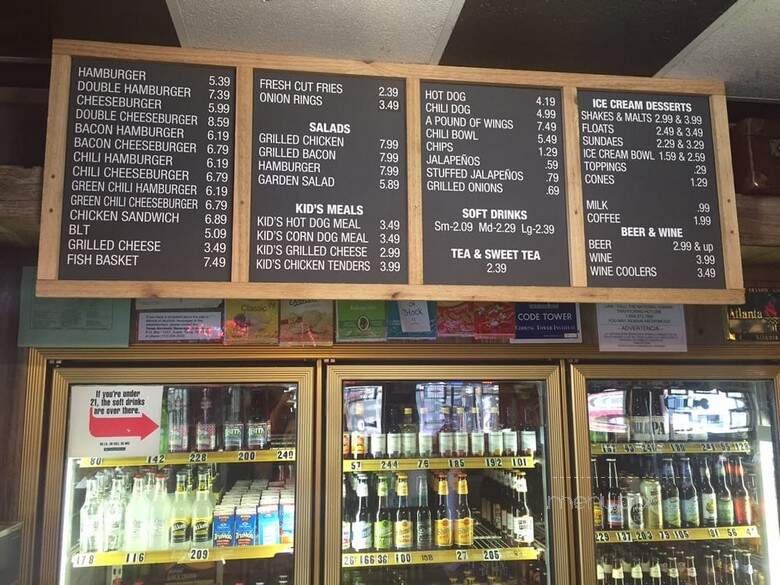 HAMBURGER 5.39
DOUBLE HAMBURGER 7.39
CHEESEBURGER 5.99
DOUBLE CHEESEBURGER 8.59
BACON HAMBURGER 6.19
BACON CHEESEBURGER 6.79
CHILI HAMBURGER 6.19
CHILI CHEESEBURGER 6.79
GREEN CHILI HAMBURGER 6.19
GREEN CHILI CHEESEBURGER 6.79
CHICKEN SANDWICH 6.89
BLT 5.09
GRILLED CHEESE 3.49
FISH BASKET 7.49
FRESH CUT FRIES 2.39
ONION RINGS 3.49
SALADS
GRILLED CHICKEN 7.99
GRILLED BACON 7.99
HAMBURGER 7.99
GARDEN SALAD 5.89
KID'S MEALS
KID'S HOT DOG MEAL 3.49
KID'S CORN DOG MEAL 3.49
KID'S GRILLED CHEESE 2.99
KID'S CHICKEN TENDERS 3.99
HOT DOG 4.19
CHILI DOG 4.99
A POUND OF WINGS 7.49
CHILI BOWL 5.49
CHIPS 1.29
JALAPEÑOS .59
STUFFED JALAPEÑOS .79
GRILLED ONIONS .69
SOFT DRINKS
Sm-2.09 Md-2.29 Lg-2.39
TEA & SWEET TEA
2.39
ICE CREAM DESSERTS
SHAKES & MALTS 2.99 & 3.99
FLOATS 2.49 & 3.49
SUNDAES 2.29 & 3.29
ICE CREAM BOWL 1.59 & 2.59
TOPPINGS .29
CONES 1.29
MILK .99
COFFEE 1.99
BEER & WINE
BEER 2.99 & up
WINE 3.99
WINE COOLERS 3.49
Classic
Stock
CODE TOWER
ADVERTENCIA
Atlanta
If you're under
21, the soft drinks
are over there.
80 142 228 200 240
57 244 76 185 192 101
178 116 209
26 166 36 100 108 27 205
129 137 203 79 105 191 56
menu